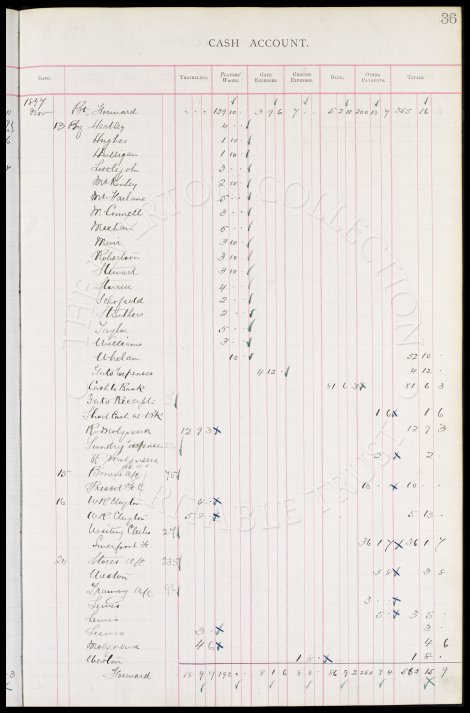 36
CASH ACCOUNT.
DATE. TRAVELLING. PLAYERS' WAGES. GATE EXPENSES. GROUND EXPENSES. BANK. OTHER PAYMENTS. TOTALS.
1897
Nov Bt. Forward 139 10 3 9 6 7 365 16
13 By Hartley 4
Hughes 1 10
Hulligan 1 10
Littlejohn 3
McKinley 2 10
McFarlane 5
McConnell 3
Meehan 5
Muir 3 10
Robertson 3 10
Stewart 3 10
Storrier 4
Schofield 2
Struthers 2
Taylor 5
Williams 3
Whelan 10 52 10
Gate Expenses 4 12 4 12
Cash to Bank 81 6 3 81 6 3
Gate Receipts
Short Cash at Bk 1 6 1 6
R. Molyneux 12 9 3 12 9 3
Sundry Expenses
R. Molyneux 2 2
15 a/c
Prescot 10 10
16 W.R. Clayton 5
W.R. Clayton 5 8 5 13
Visiting Clubs
Liverpool 36 1 7 36 1 7
20 Stores a/c
Weston 3 8 3 8
a/c
Lewis 3
Lewis 5 3 5
Lewis 3 3
Molyneux 4 6 4 6
Weston 1 8 1 8
Forward 18 9 9 192 8 1 6 8 8 565 15 9
THE EVERTON COLLECTION CHARITABLE TRUST